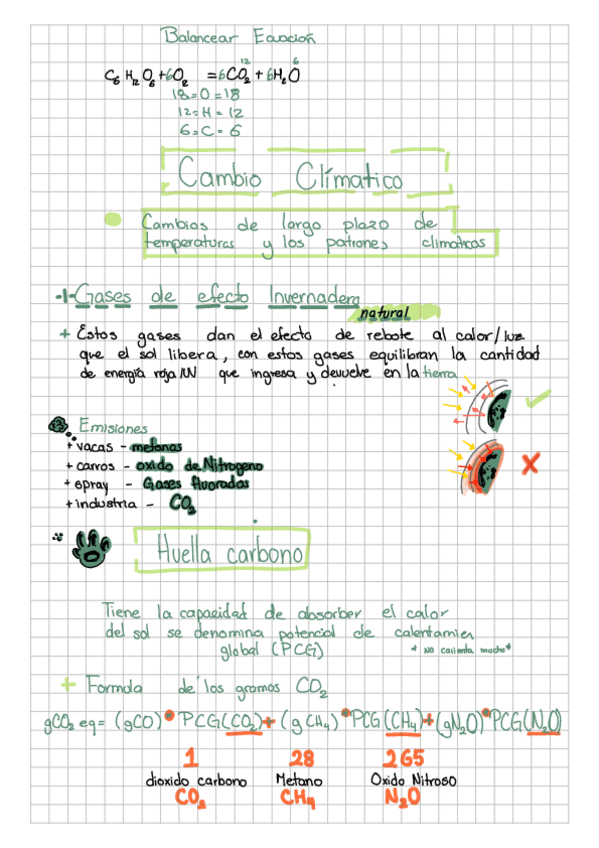 Balancear Ecuación
12 6
C6 H12 O6 + 6O2 = 6CO2 + 6H2O
18 = O = 18
12 = H = 12
6 = C = 6
Cambio Clímatico
Cambios de largo plazo de
temperaturas y los patrones climaticos
-1- Gases de efecto Invernadero
natural
+ Estos gases dan el efecto de rebote al calor/luz
que el sol libera, con estos gases equilibran la cantidad
de energía roja/UV que ingresa y devuelve en la tierra
Emisiones
+ vacas - metanas
+ carros - oxido de Nitrogeno
+ spray - Gases fluorados
+ industria - CO2
Huella carbono
Tiene la capacidad de absorber el calor
del sol se denomina potencial de calentamien
global (PCG) * No calienta mucho *
+ Formula de los gramos CO2
gCO2 eq = (gCO) • PCG(CO2) + (g CH4) • PCG(CH4) + (gN2O) • PCG(N2O)
1 28 265
dioxido carbono Metano Oxido Nitroso
CO2 CH4 N2O